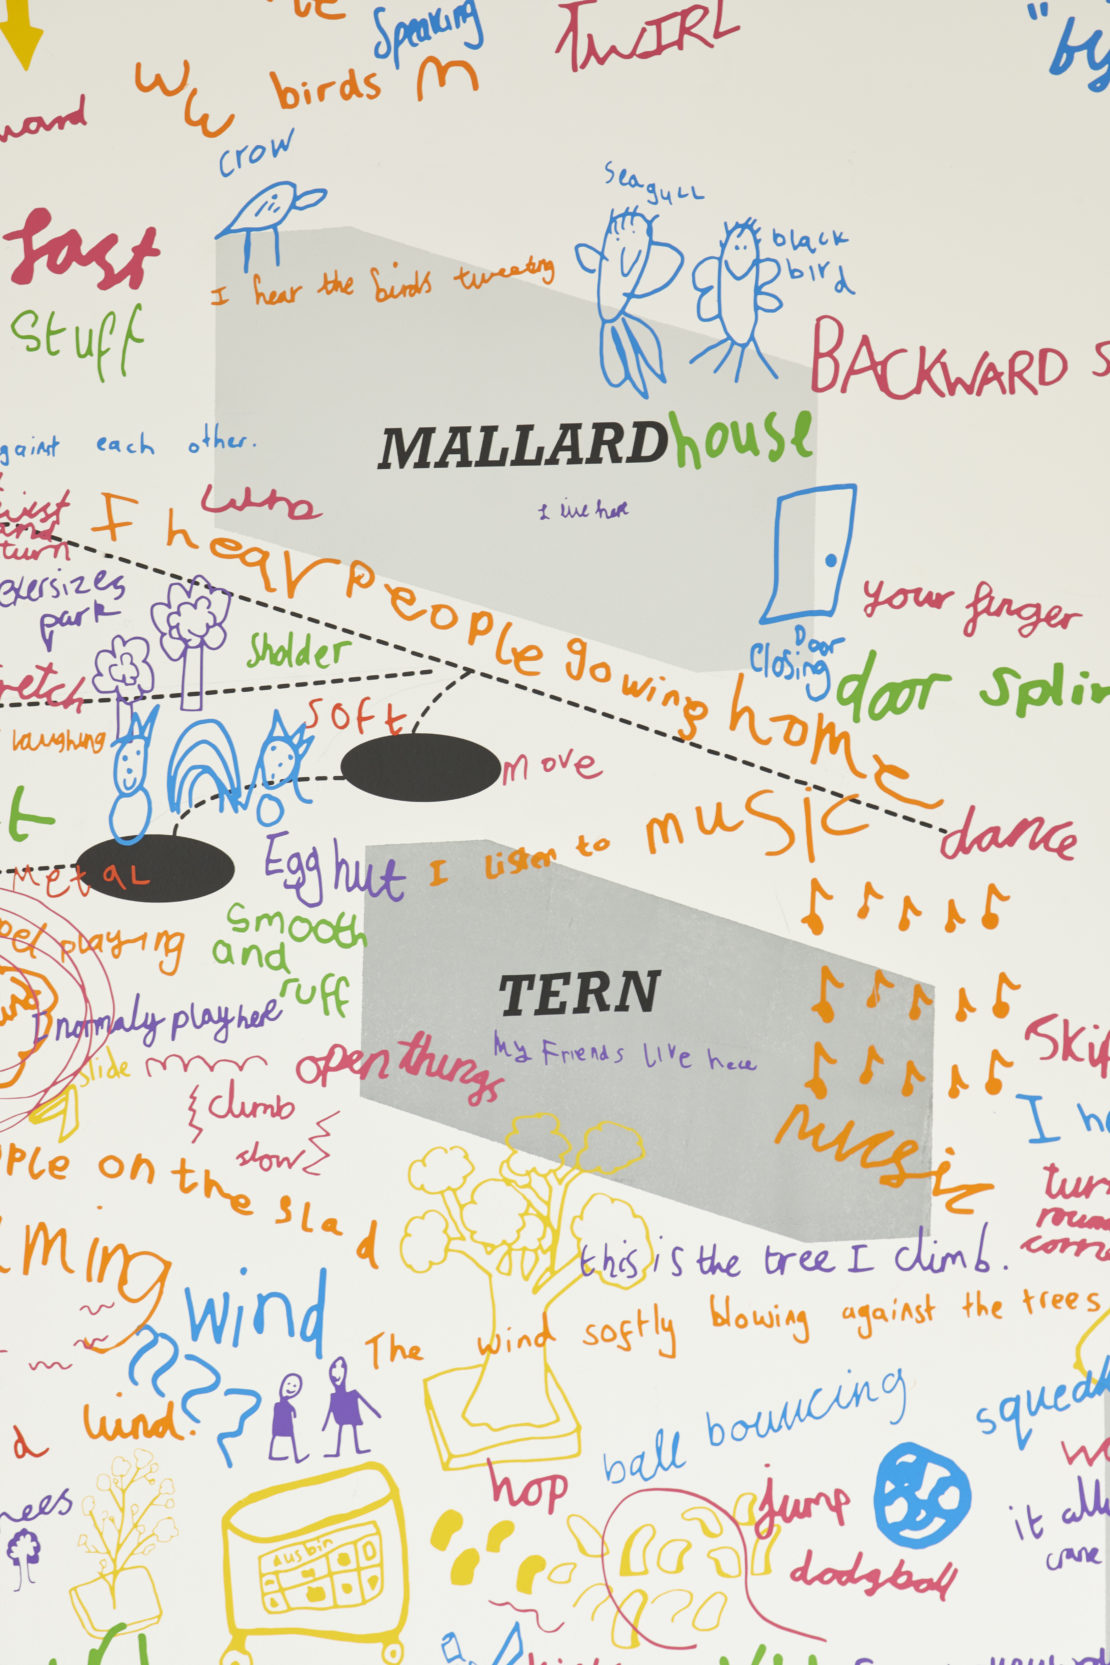 Speaking
TWIRL
"by
birds
crow
seagull
black
bird
fast
stuff
I hear the birds tweeting
BACKWARD S
MALLARD house
I live here
against each other.
twist
and
turn
I hear people gowing home
exersizes
park
sholder
your finger
Door
Closing
door splin
retch
laughing
soft
move
dance
Metal
Egg hut
I listen to music
smooth
and
ruff
playing
TERN
I normaly play here
My Friends Live here
open things
Skip
slide
climb
slow
music
I h
turn
round
corne
ople on the slad
ming
this is the tree I climb.
wind
The wind softly blowing against the trees
wind.
ball bouncing
squeak
hop
jump
it all
crane
dusbin
dodgball